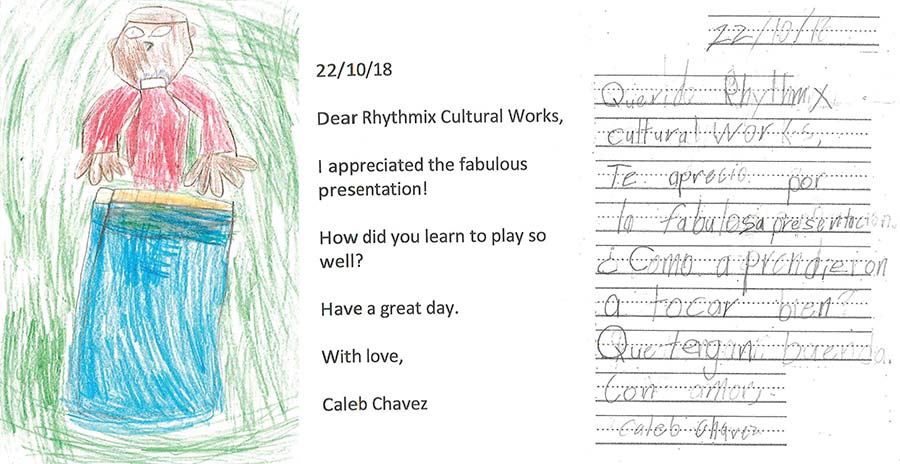 22/10/18
Dear Rhythmix Cultural Works,
I appreciated the fabulous
presentation!
How did you learn to play so
well?
Have a great day.
With love,
Caleb Chavez
22/10/18
Querido Rhythmix
cultural works,
Te aprecio por
la fabulosa presentacion.
¿Como aprendieron
a tocar bien?
Que tengan buen dia.
Con amor,
Caleb Chavez